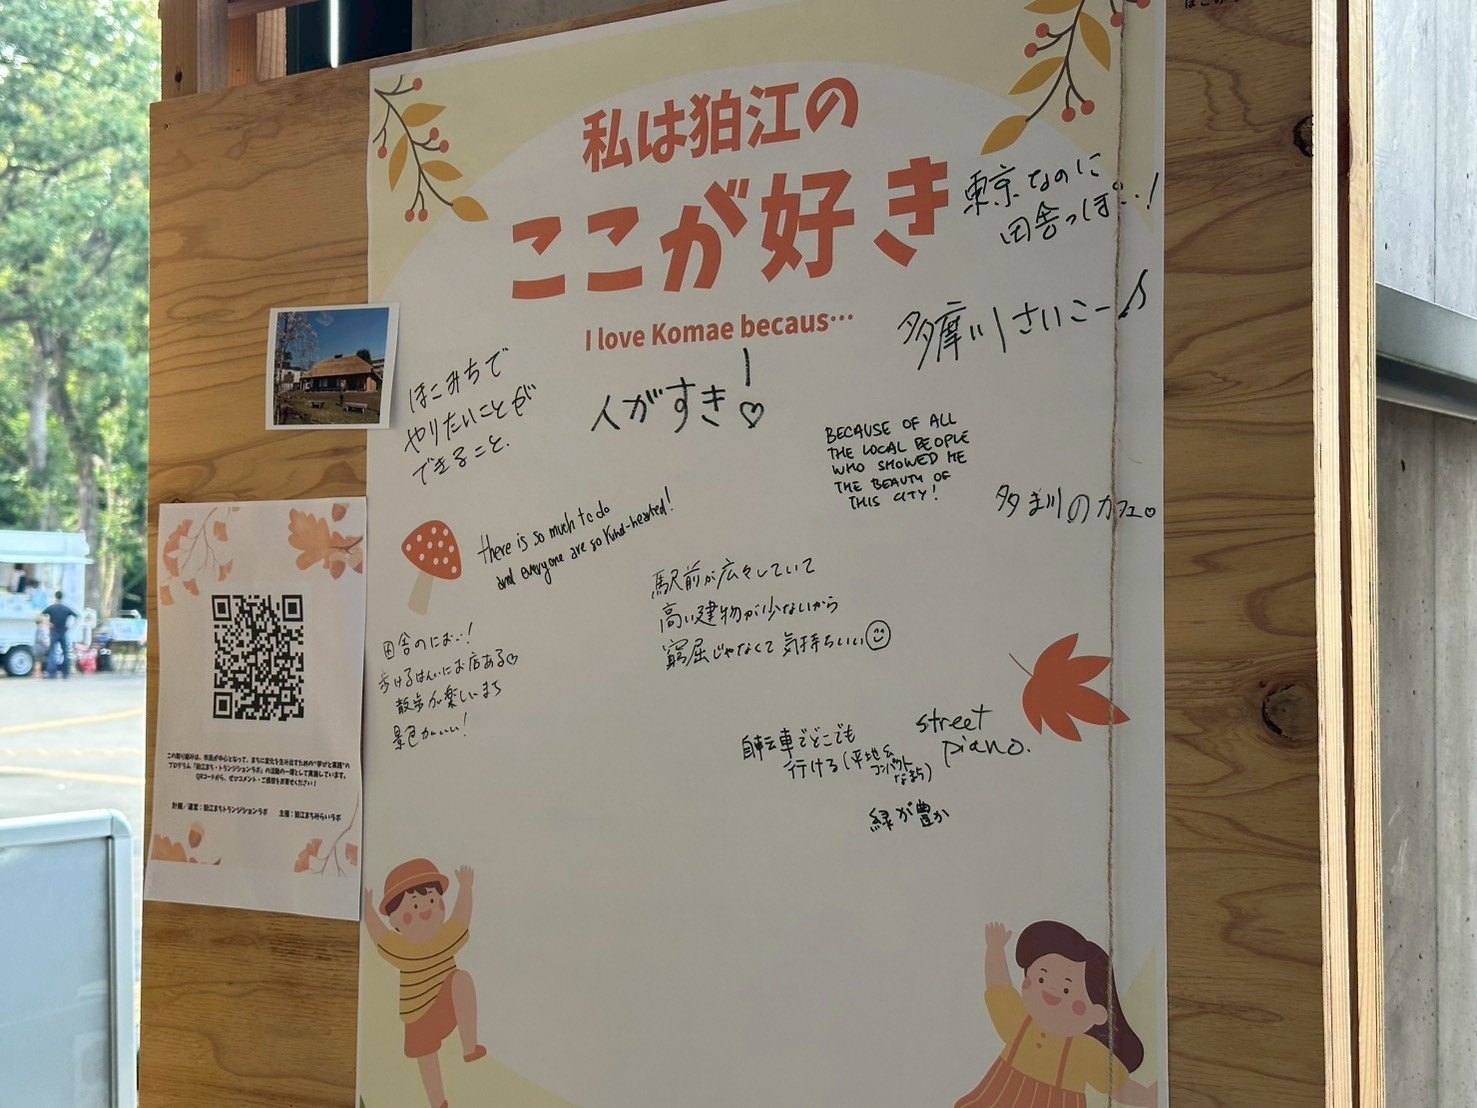 私は狛江の
ここが好き
I love Komae becaus…
東京なのに
田舎っぽい!
多摩川さいこー♪
ほこみちで
やりたいことが
できること.
人がすき!♡
BECAUSE OF ALL
THE LOCAL PEOPLE
WHO SHOWED ME
THE BEAUTY OF
THIS CITY!
多ま川のカフェ♡
there is so much to do
and everyone are so kind-hearted!
駅前が広々していて
高い建物が少ないから
窮屈じゃなくて気持ちいい☺
田舎のにおい!
歩けるはんいにお店ある♡
散歩が楽しいまち
景色がいい!
自転車でどこでも
行ける(平地&
コンパクト
なまち)
street
piano.
緑が豊か
この取り組みは、市民が中心となって、まちに変化を生み出すための"学びと実践"の
プログラム「狛江まち・トランジションラボ」の活動の一環として実施しています。
QRコードから、ぜひコメント・ご感想をお寄せください!
計画/運営:狛江まちトランジションラボ 主催:狛江まちみらいラボ